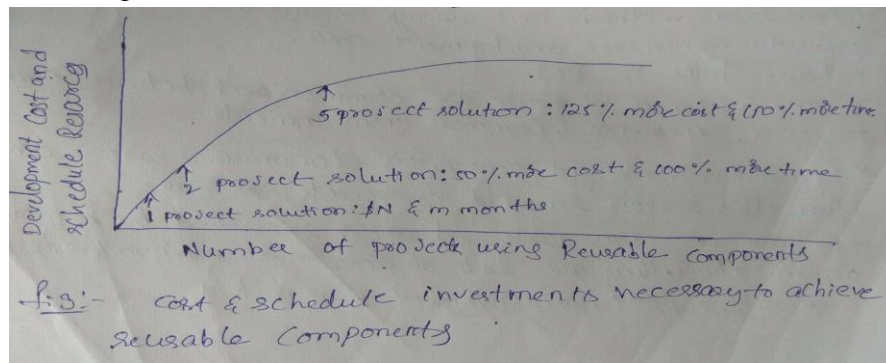 Development Cost and
schedule Resource
5 project solution : 125 % more cost & 150 % more time
2 project solution : 50 % more cost & 100 % more time
1 project solution : $N & m months
Number of projects using Reusable Components
fig :- cost & schedule investments necessary to achieve
reusable components